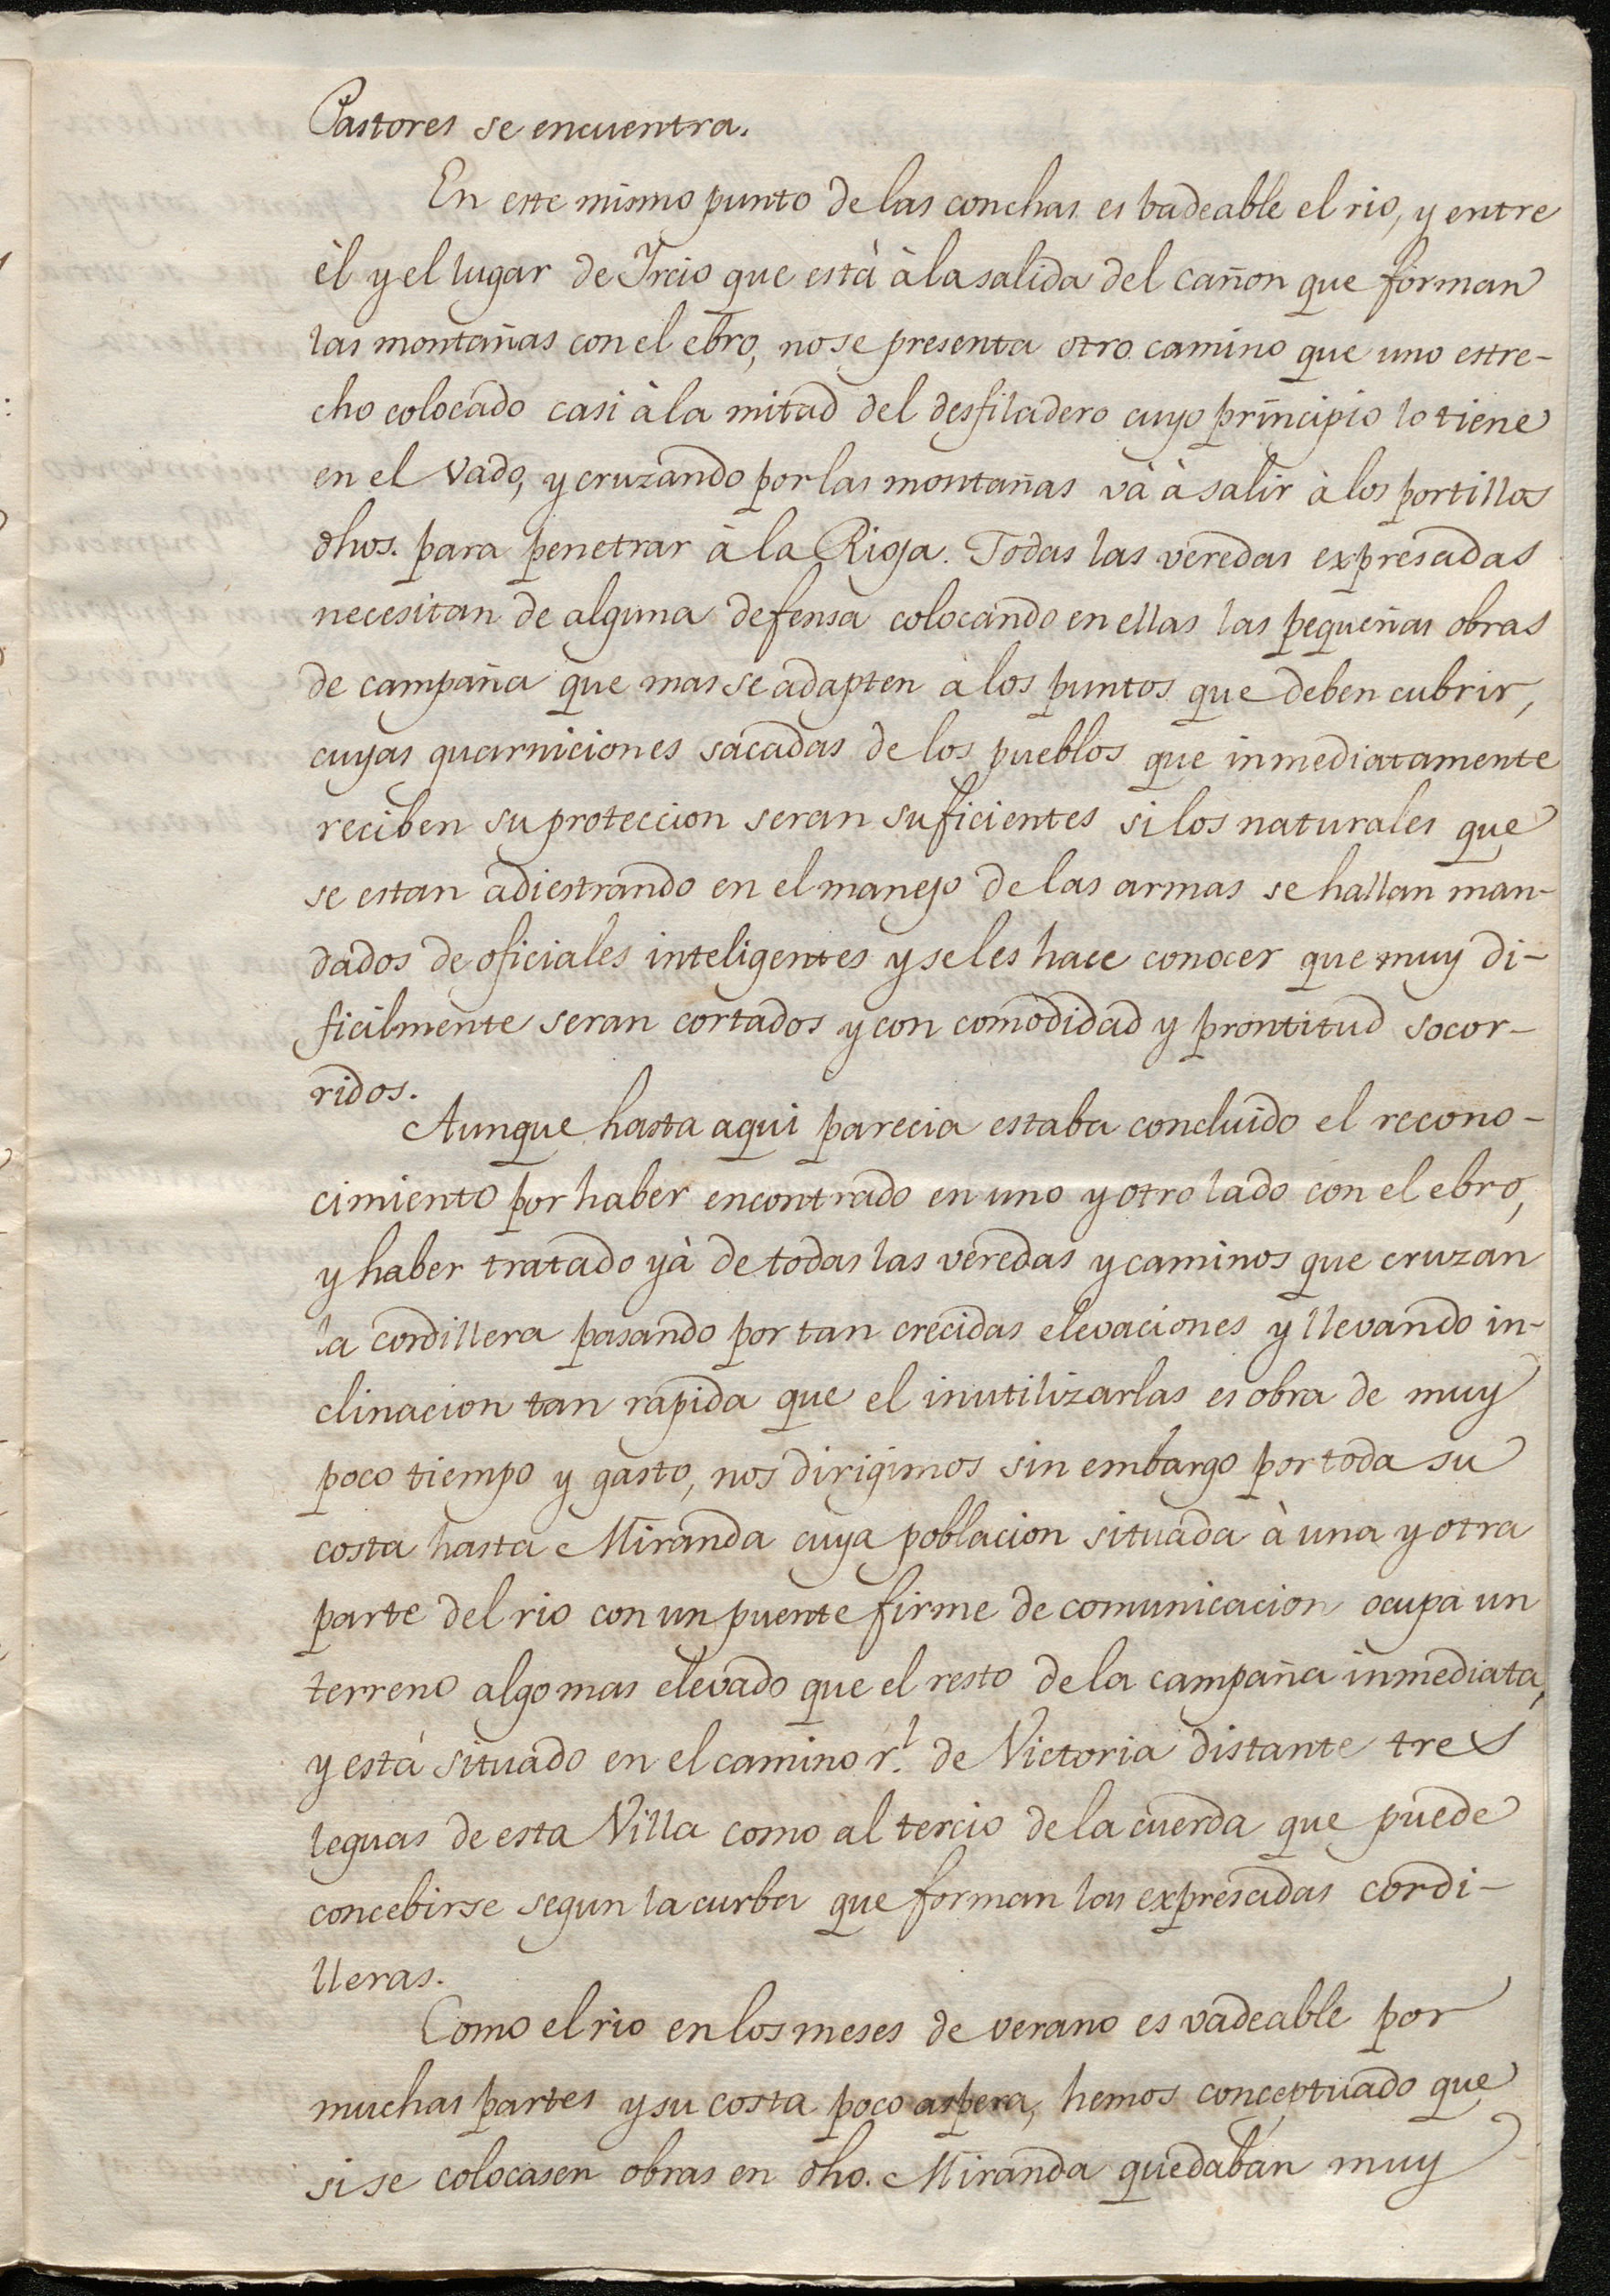 Pastores se encuentra.
En este mismo punto de las conchas es badeable el rio, y entre
èl y el lugar de Ircio que està à la salida del cañon que forman
las montañas con el ebro, no se presenta otro camino que uno estre-
cho colocado casi à la mitad del desfiladero cuyo principio lo tiene
en el vado, y cruzando por las montañas và à salir à los portillos
dhos. para penetrar à la Rioja. Todas las veredas expresadas
necesitan de alguna defensa colocando en ellas las pequeñas obras
de campaña que mas se adapten à los puntos que deben cubrir,
cuyas guarniciones sacadas de los pueblos que inmediatamente
reciben su proteccion seran suficientes si los naturales que
se estan adiestrando en el manejo de las armas se hallan man-
dados de oficiales inteligentes y se les hace conocer que muy di-
ficilmente seran cortados y con comodidad y prontitud socor-
ridos.
Aunque hasta aqui parecia estaba concluido el recono-
cimiento por haber encontrado en uno y otro lado con el ebro,
y haber tratado yà de todas las veredas y caminos que cruzan
la cordillera pasando por tan crecidas elevaciones y llevando in-
clinacion tan rapida que el inutilizarlas es obra de muy
poco tiempo y gasto, nos dirigimos sin embargo por toda su
costa hasta Miranda cuya poblacion situada à una y otra
parte del rio con un puente firme de comunicacion ocupa un
terreno algo mas elevado que el resto de la campaña inmediata,
y està situado en el camino r.l de Victoria distante tres
leguas de esta Villa como al tercio de la cuerda que puede
concebirse segun la curba que forman las expresadas cordi-
lleras.
Como el rio en los meses de verano es vadeable por
muchas partes y su costa poco aspera, hemos conceptuado que
si se colocasen obras en dho. Miranda quedaban muy